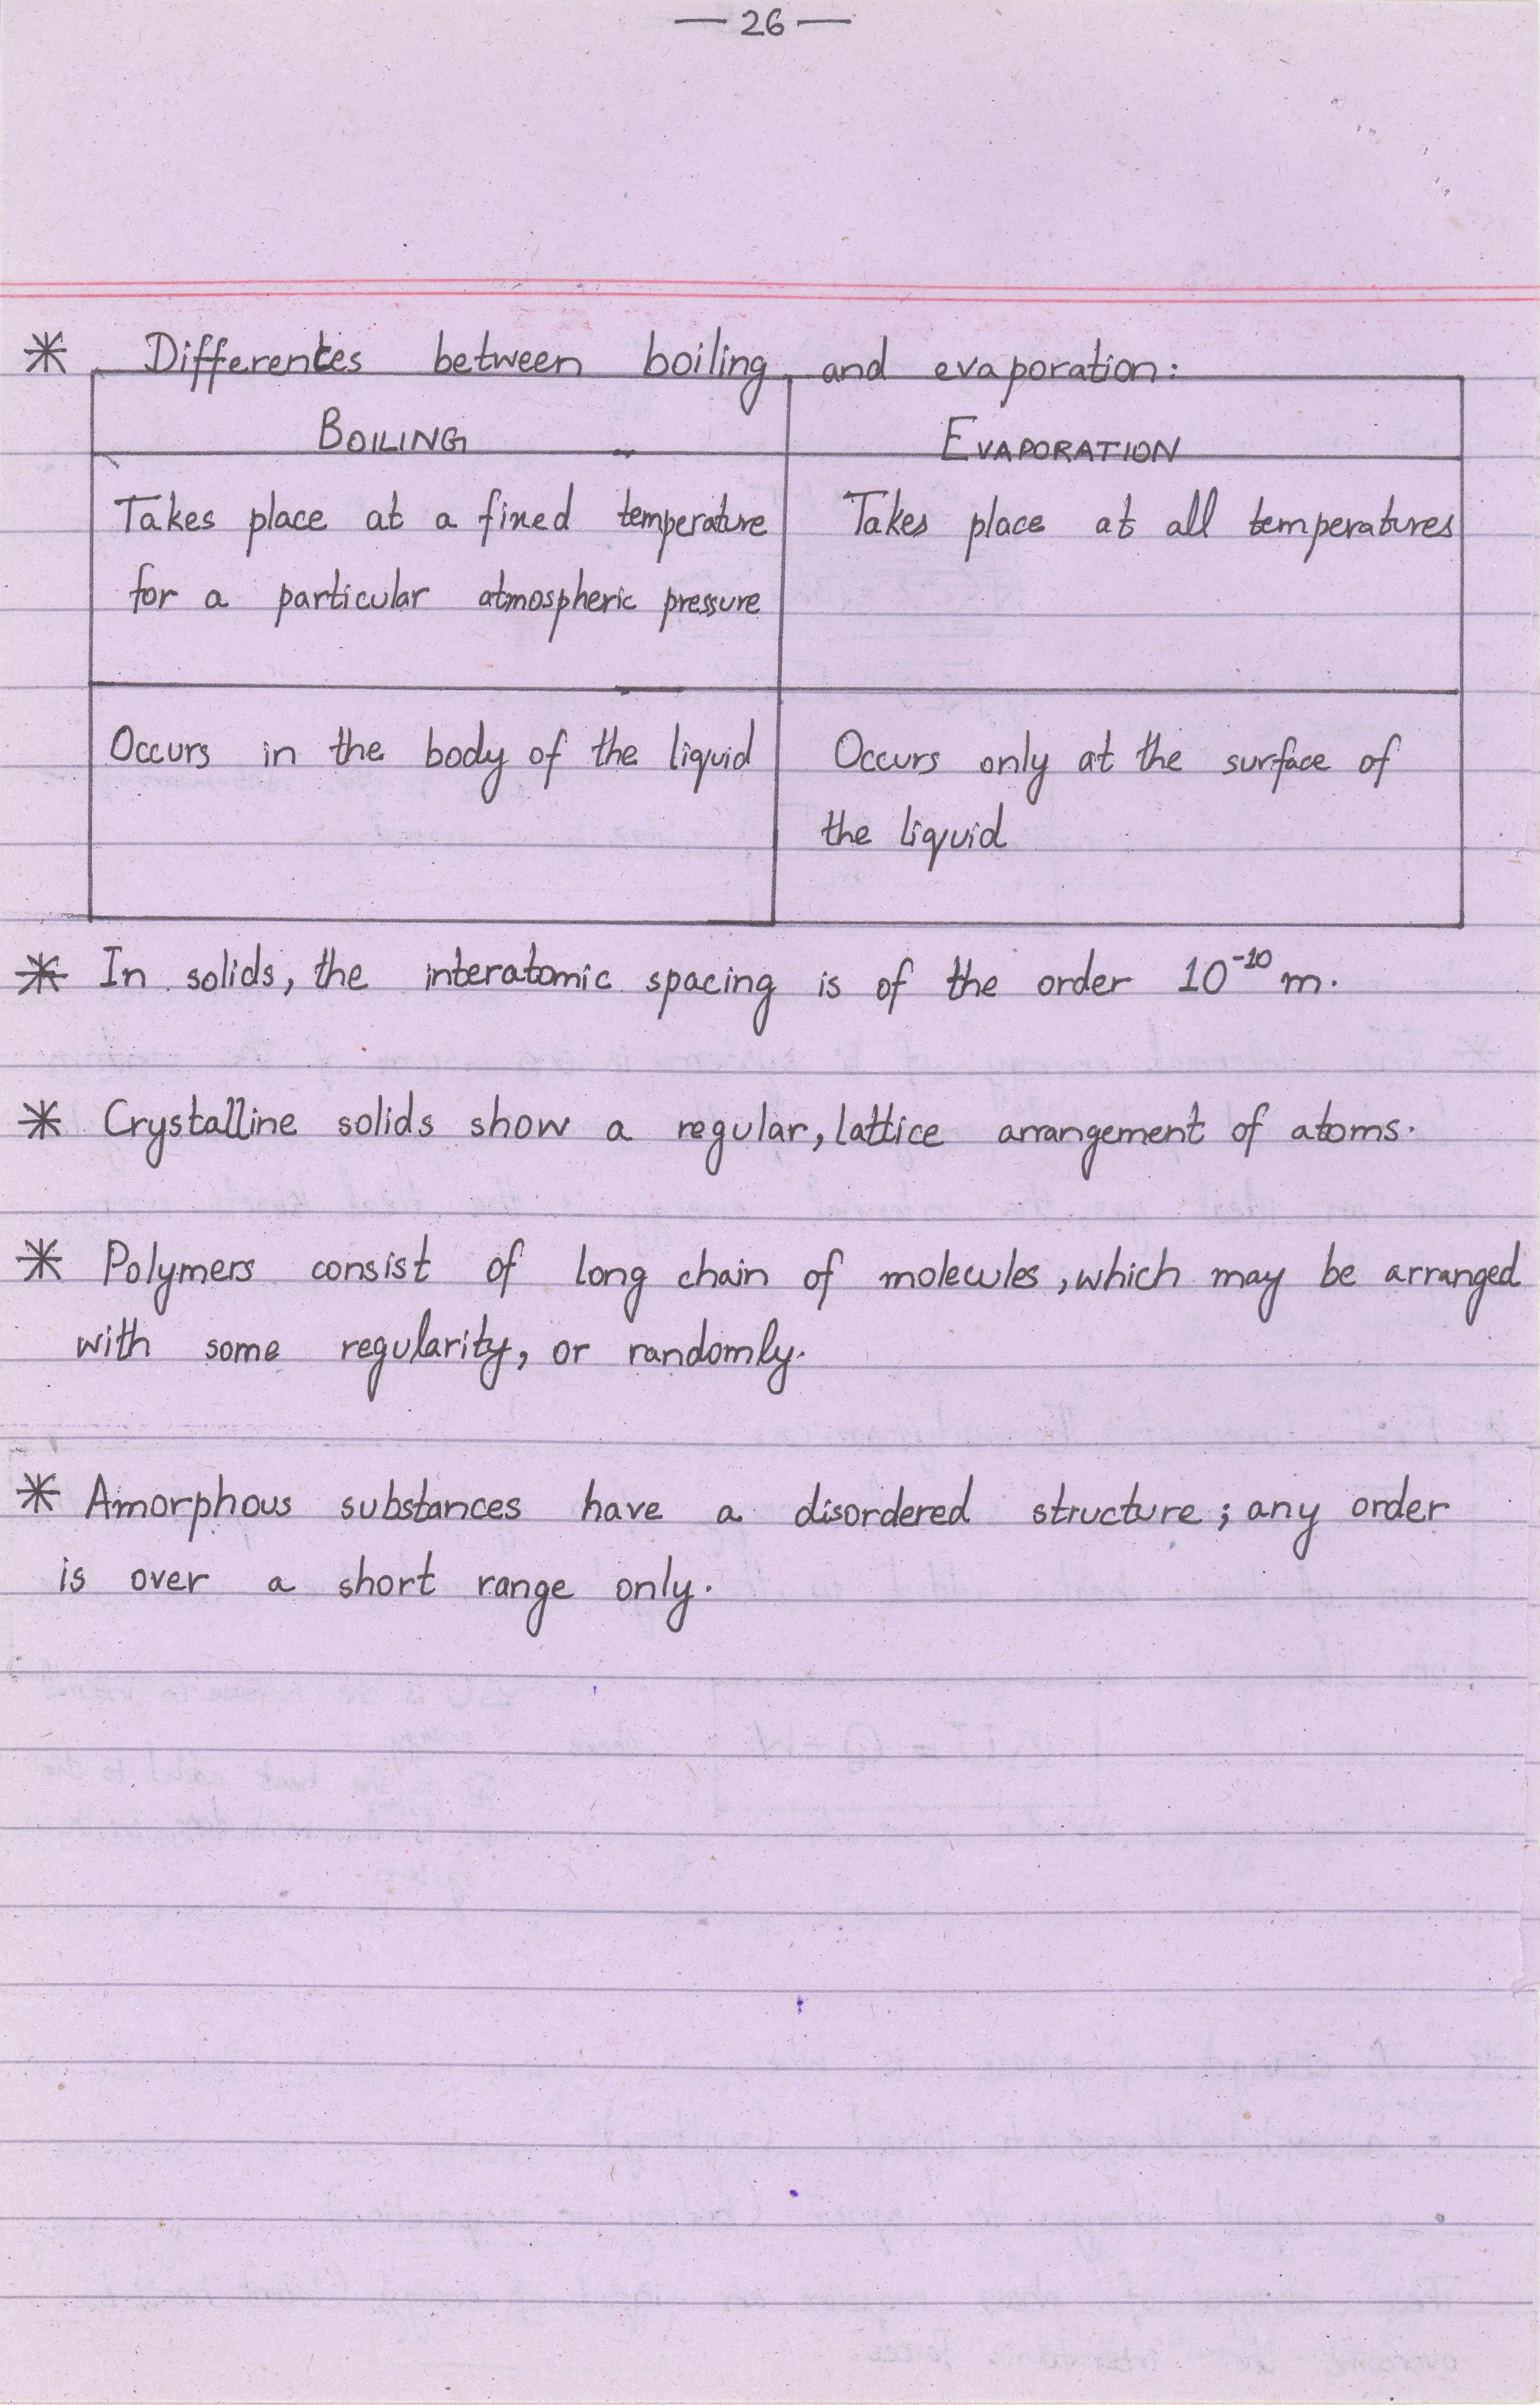 — 26 —
* Differences between boiling and evaporation:
BOILING EVAPORATION
Takes place at a fixed temperature Takes place at all temperatures
for a particular atmospheric pressure
Occurs in the body of the liquid Occurs only at the surface of
the liquid
* In solids, the interatomic spacing is of the order 10⁻¹⁰ m.
* Crystalline solids show a regular, lattice arrangement of atoms.
* Polymers consist of long chain of molecules, which may be arranged
with some regularity, or randomly.
* Amorphous substances have a disordered structure; any order
is over a short range only.